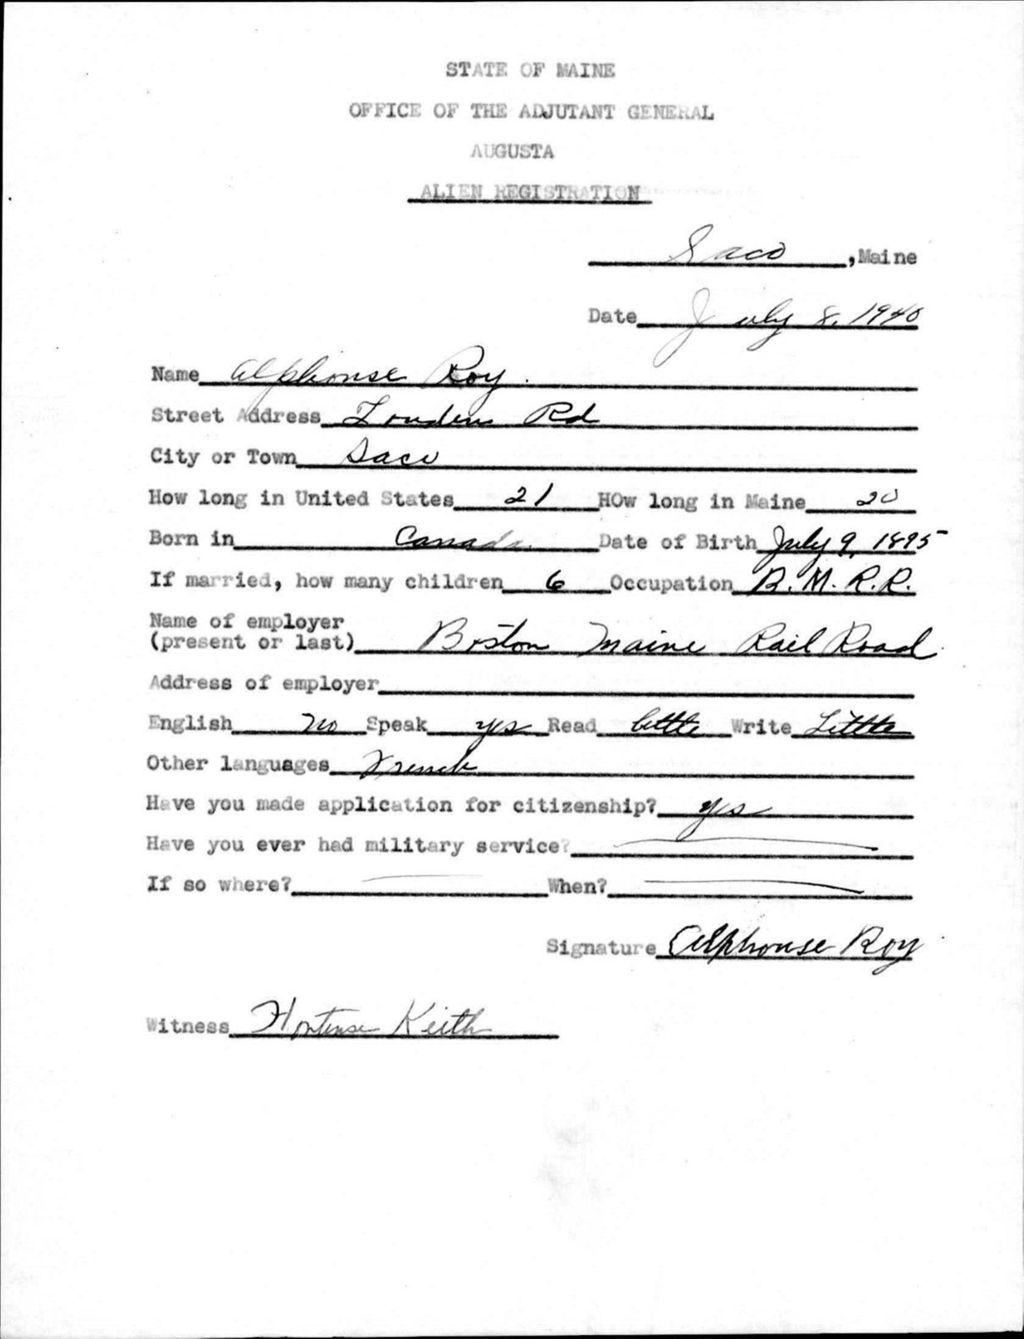 STATE OF MAINE
OFFICE OF THE ADJUTANT GENERAL
AUGUSTA
ALIEN REGISTRATION
Saco, Maine
Date July 8, 1940
Name Alphonse Roy.
Street Address Loudens Rd
City or Town Saco
How long in United States 21 HOw long in Maine 20
Born in Canada Date of Birth July 9, 1895
If married, how many children 6 Occupation B.M.R.R.
Name of employer
(present or last) Boston Maine Rail Road
Address of employer
English no Speak yes Read little Write Little
Other languages French
Have you made application for citizenship? yes
Have you ever had military service?
If so where? When?
Signature Alphonse Roy
Witness Hortense Keith